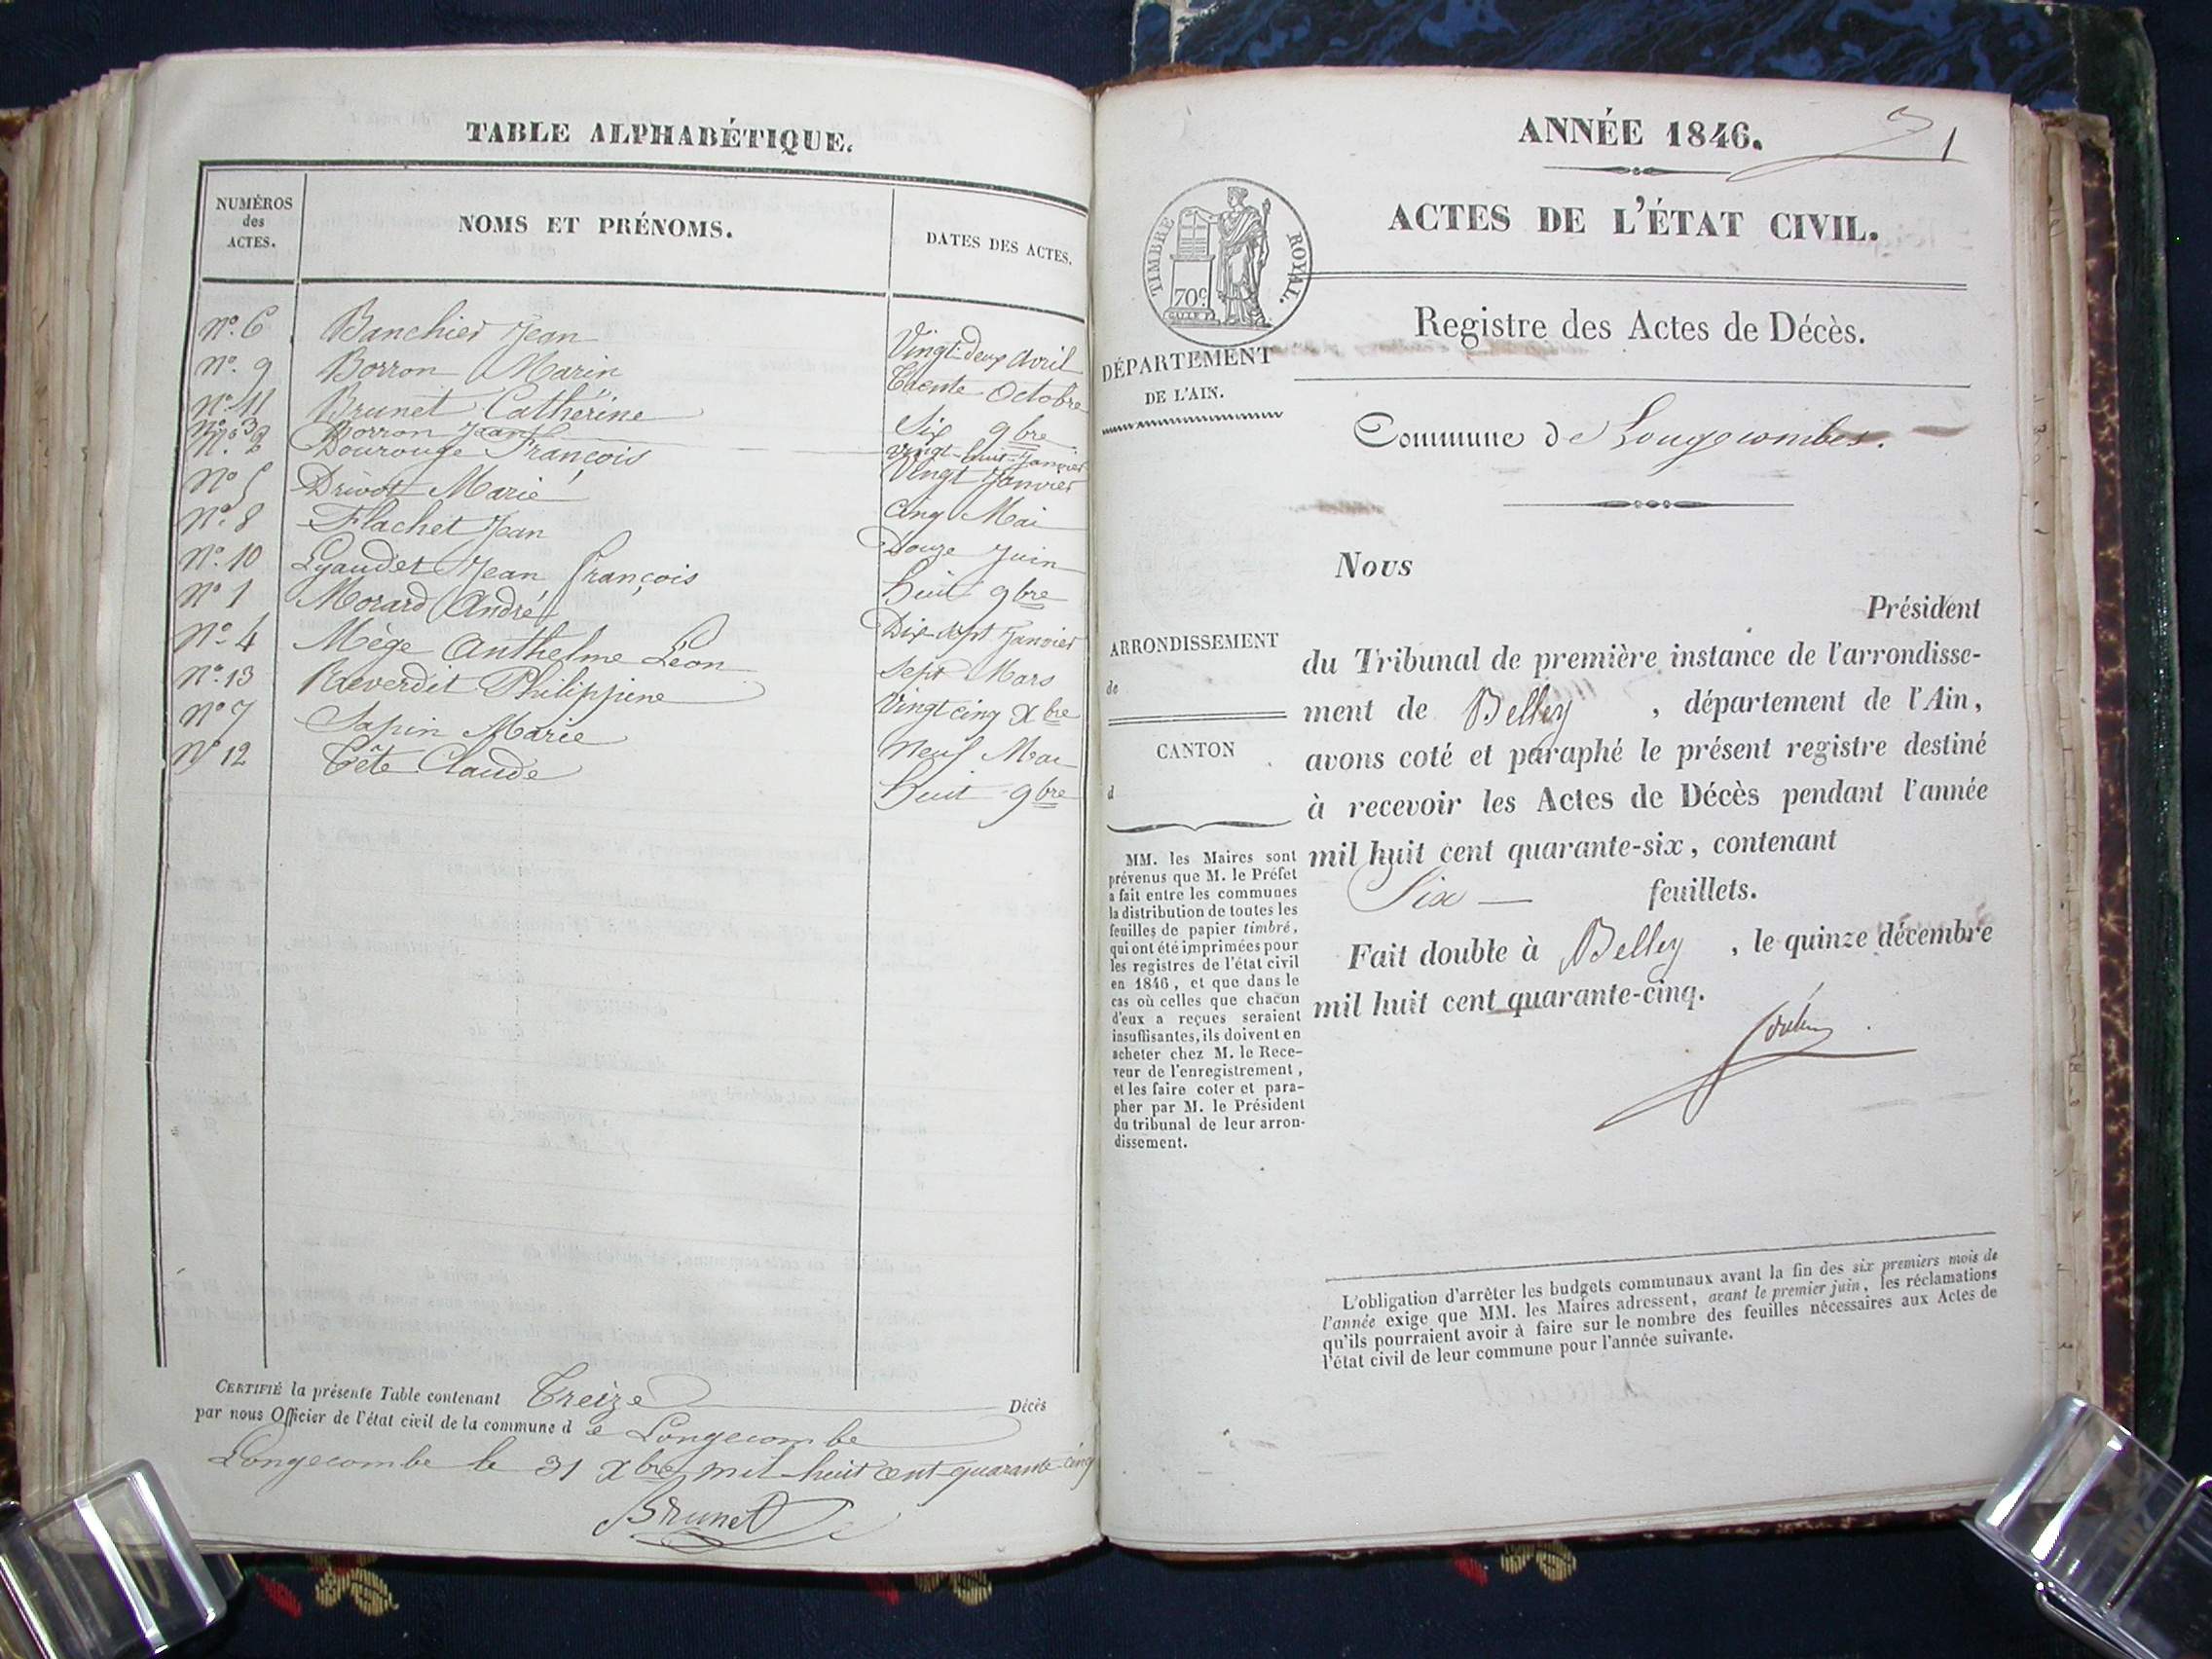 TABLE ALPHABÉTIQUE.
NUMÉROS
des
ACTES.
NOMS ET PRÉNOMS.
DATES DES ACTES.
No. 6 Banchier Jean Vingt-deux avril
No. 9 Borron Marin Trente Octobre
No. 11 Brunet Catherine Six 9bre
No. 3 Borron Jean Vingt-huit Janvier
No. 2 Dourouge François Vingt Janvier
No. 5 Drivot Marie Cinq Mai
No. 8 Flachet Jean Douze Juin
No. 10 Lyaudet Jean François huit 9bre
No. 1 Morard André Dix-sept Janvier
No. 4 Mège Anthelme Léon Sept Mars
No. 13 Reverdit Philippine Vingt cinq Xbre
No. 7 Sapin Marie Neuf Mai
No. 12 Tête Claude huit 9bre
CERTIFIÉ la présente Table contenant Treize Décès
par nous Officier de l'état civil de la commune de Longecombe
Longecombe le 31 Xbre mil huit cent quarante cinq
Brunet
ANNÉE 1846.
1
ACTES DE L'ÉTAT CIVIL.
TIMBRE ROYAL.
70c
Registre des Actes de Décès.
DÉPARTEMENT
DE L'AIN.
Commune de Longecombes.
Nous
Président
ARRONDISSEMENT
de
CANTON
d
du Tribunal de première instance de l'arrondisse-
ment de Belley, département de l'Ain,
avons coté et paraphé le présent registre destiné
à recevoir les Actes de Décès pendant l'année
mil huit cent quarante-six, contenant
Six — feuillets.
Fait double à Belley, le quinze décembre
mil huit cent quarante-cinq.
MM. les Maires sont
prévenus que M. le Préfet
a fait entre les communes
la distribution de toutes les
feuilles de papier timbré,
qui ont été imprimées pour
les registres de l'état civil
en 1846, et que dans le
cas où celles que chacun
d'eux a reçues seraient
insuffisantes, ils doivent en
acheter chez M. le Rece-
veur de l'enregistrement,
et les faire coter et para-
pher par M. le Président
du tribunal de leur arron-
dissement.
L'obligation d'arrêter les budgets communaux avant la fin des six premiers mois de
l'année exige que MM. les Maires adressent, avant le premier juin, les réclamations
qu'ils pourraient avoir à faire sur le nombre des feuilles nécessaires aux Actes de
l'état civil de leur commune pour l'année suivante.